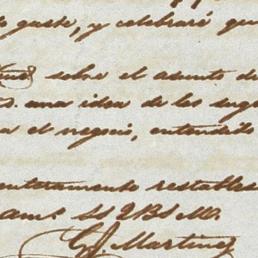 gusto, y celebraré que
sobre el asunto de
una idea de los sug
a el negocio, entendido
enteramente restables
am.º SS Q B S M.
Martinez